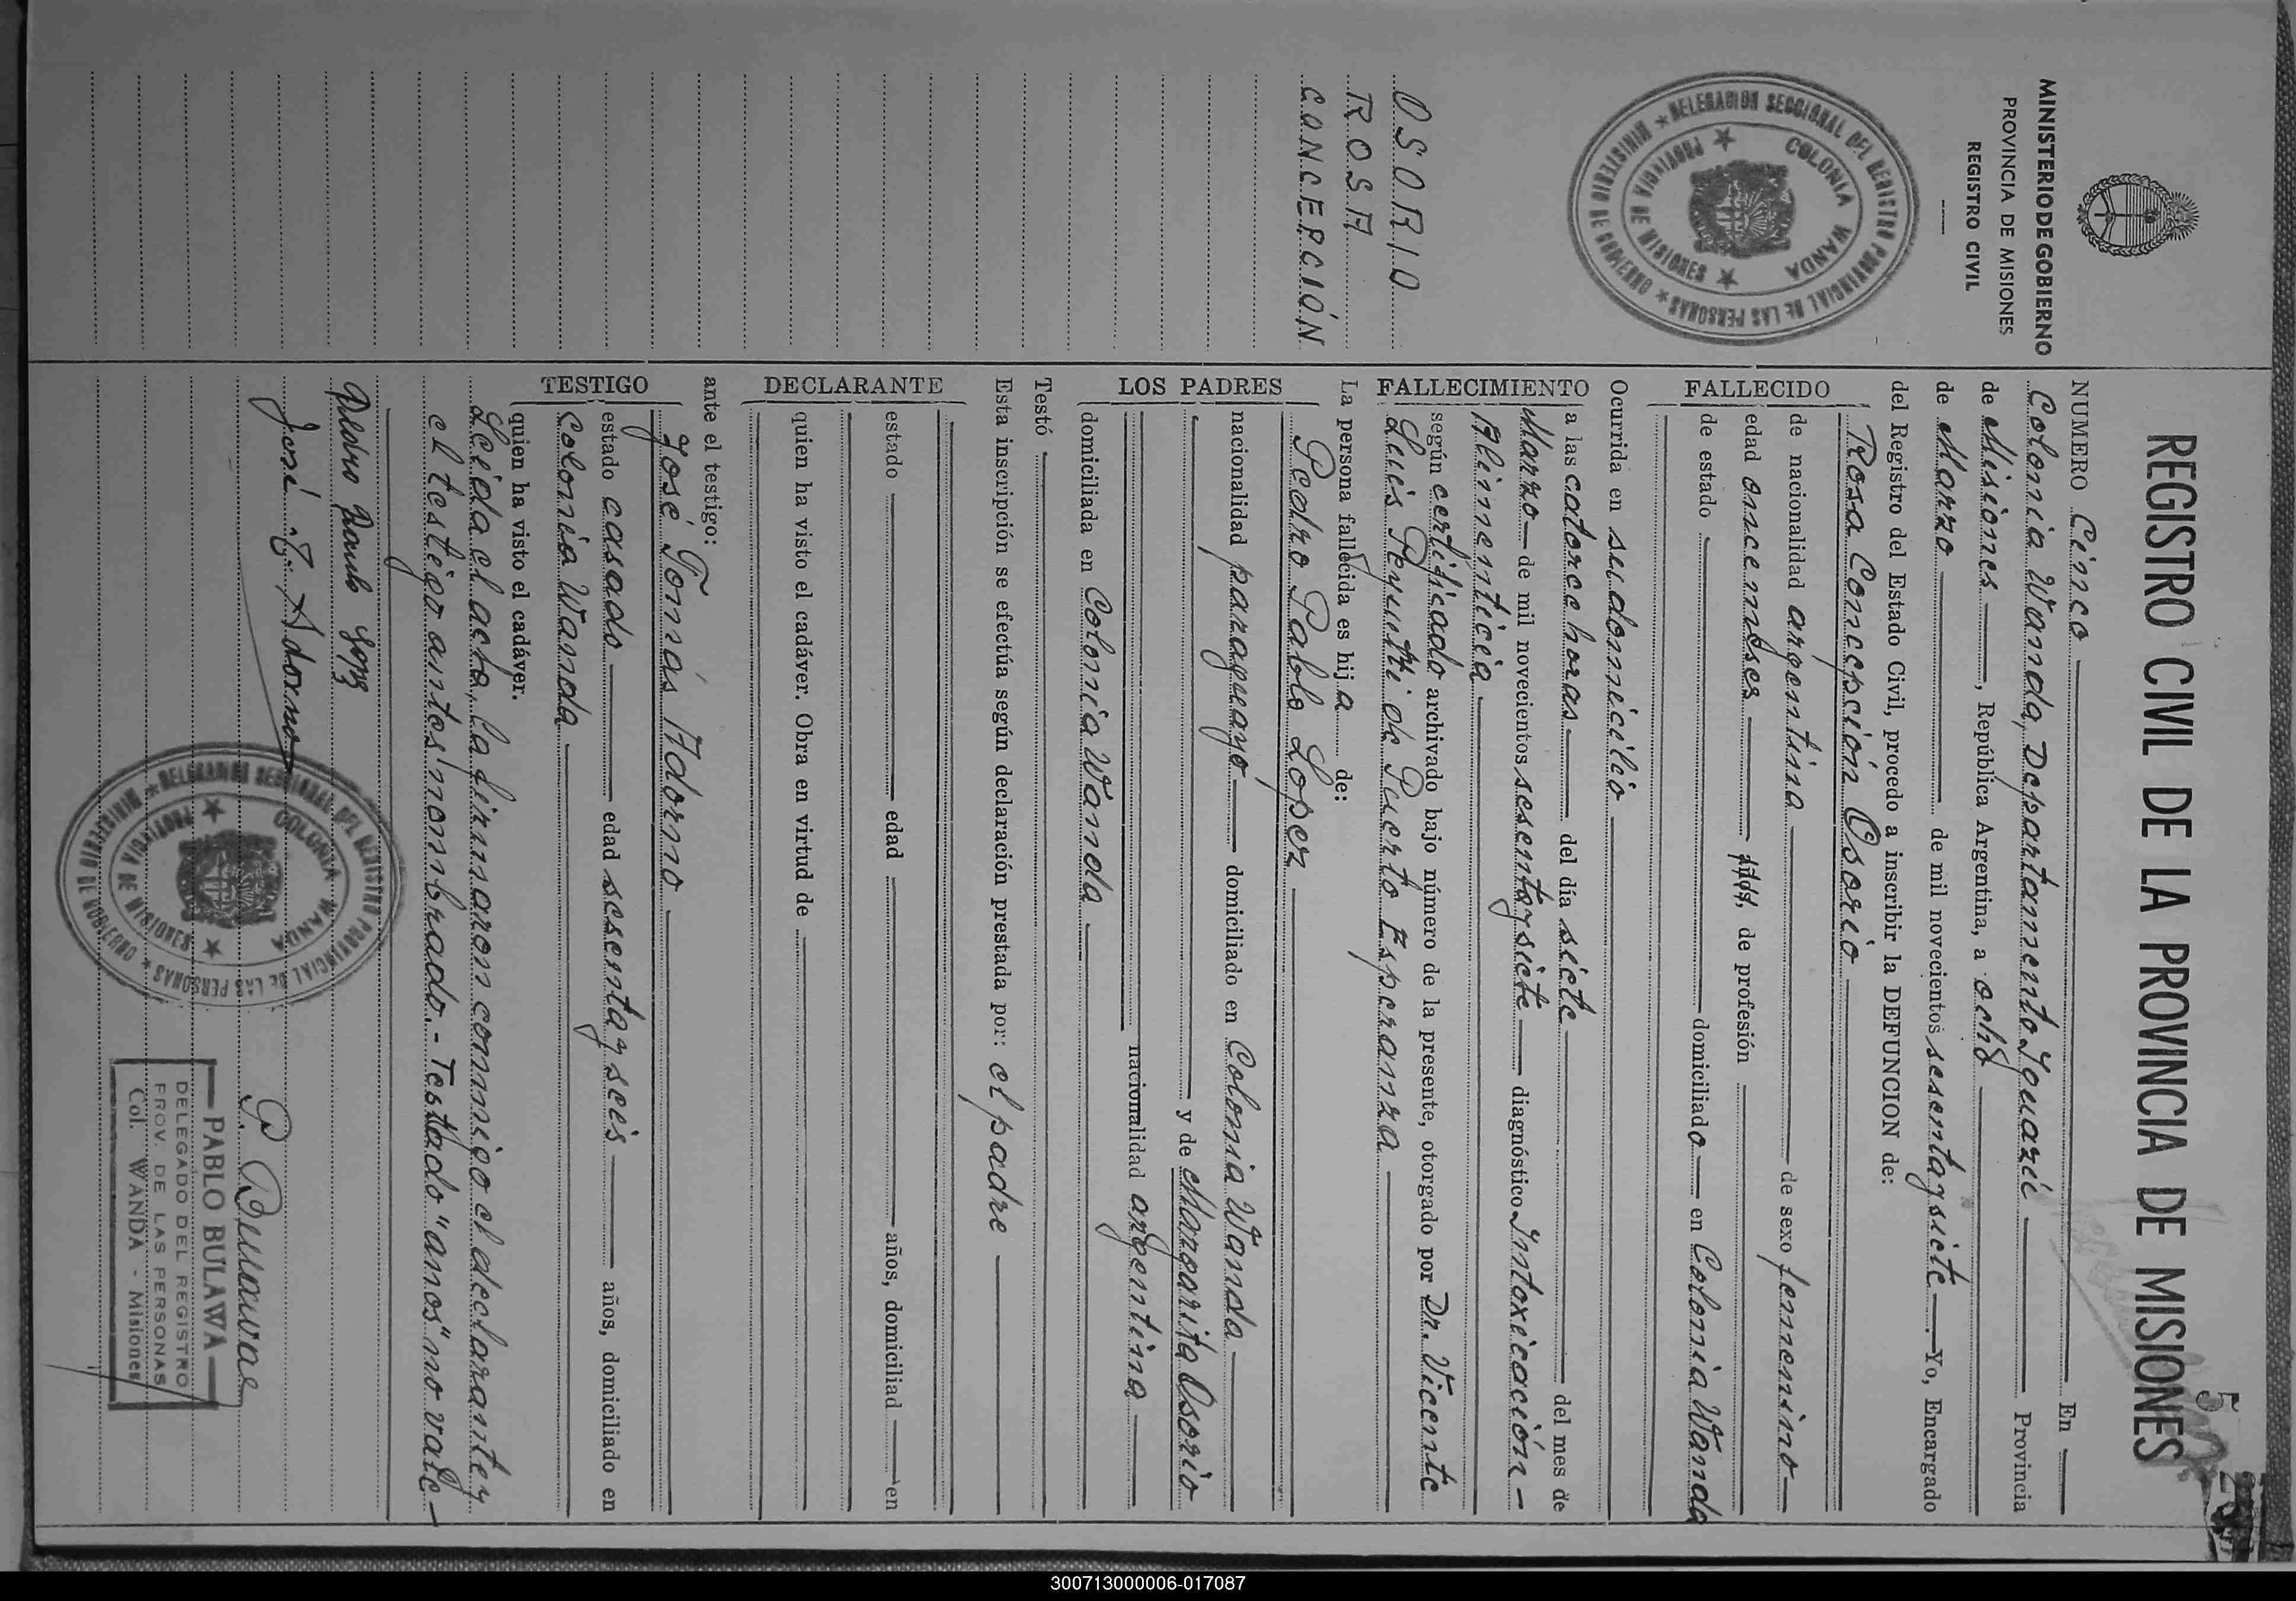 5
REGISTRO CIVIL DE LA PROVINCIA DE MISIONES
MINISTERIO DE GOBIERNO
PROVINCIA DE MISIONES
REGISTRO CIVIL
DELEGACION SECCIONAL DEL REGISTRO PROVINCIAL DE LAS PERSONAS ★ MINISTERIO DE GOBIERNO ★
COLONIA WANDA ★ PROVINCIA DE MISIONES ★
OSORIO
ROSA
CONCEPCIÓN
NUMERO Cinco En
Colonia Wanda, Departamento Iguazú Provincia
de Misiones, República Argentina, a ocho
de Marzo de mil novecientos sesentaysiete Yo, Encargado
del Registro del Estado Civil, procedo a inscribir la DEFUNCION de:
FALLECIDO
Rosa Concepción Osorio
de nacionalidad argentina de sexo femenino
edad once meses años, de profesión
de estado domiciliado en Colonia Wanda
Ocurrida en su domicilio
FALLECIMIENTO
a las catorce horas del día siete del mes de
Marzo de mil novecientos sesentaysiete diagnóstico Intoxicación
Alimenticia
según certificado archivado bajo número de la presente, otorgado por Dr. Vicente
Luis de Puerto Esperanza
La persona fallecida es hija de:
LOS PADRES
Pedro Pablo Lopez
nacionalidad paraguayo domiciliado en Colonia Wanda
y de Margarita Osorio
nacionalidad argentina
domiciliada en Colonia Wanda
Testó
Esta inscripción se efectúa según declaración prestada por: el padre
DECLARANTE
estado edad años, domiciliad en
quien ha visto el cadáver. Obra en virtud de
ante el testigo:
TESTIGO
José Tomás Adorno
estado casado edad sesentayseis años, domiciliado en
Colonia Wanda
quien ha visto el cadáver.
Leída el acta, la firmaron conmigo el declarante y
el testigo antes nombrado.- Testado "años" no vale-
José T. Adorno
DELEGACION SECCIONAL DEL REGISTRO PROVINCIAL DE LAS PERSONAS ★ MINISTERIO DE GOBIERNO ★
COLONIA WANDA ★ PROVINCIA DE MISIONES ★
PABLO BULAWA
DELEGADO DEL REGISTRO
PROV. DE LAS PERSONAS
Col. WANDA - Misiones
300713000006-017087